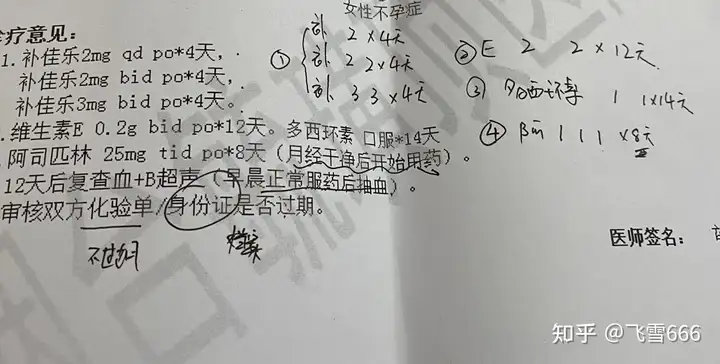 女性不孕症
诊疗意见:
1.补佳乐2mg qd po*4天,
补佳乐2mg bid po*4天,
补佳乐3mg bid po*4天。
① 补 2 x4天
补 2 2x4天
补 3 3 x4天
② E 2 2 x12天
③ 多西环素 1 1x14天
④ 1 1 1 x8天
.维生素E 0.2g bid po*12天。多西环素 口服*14天
阿司匹林 25mg tid po*8天(月经干净后开始用药)。
12天后复查血+B超声(早晨正常服药后抽血)。
审核双方化验单/身份证是否过期。
医师签名:
知乎 @飞雪666